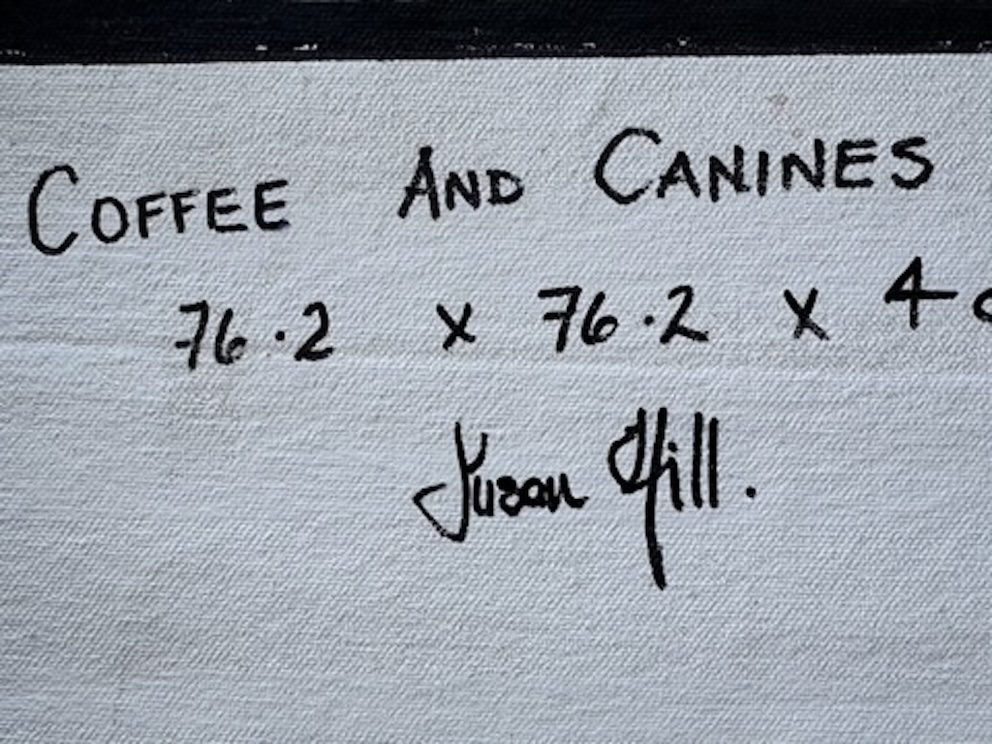 COFFEE AND CANINES
76.2 x 76.2 x 4 c
Susan Hill.